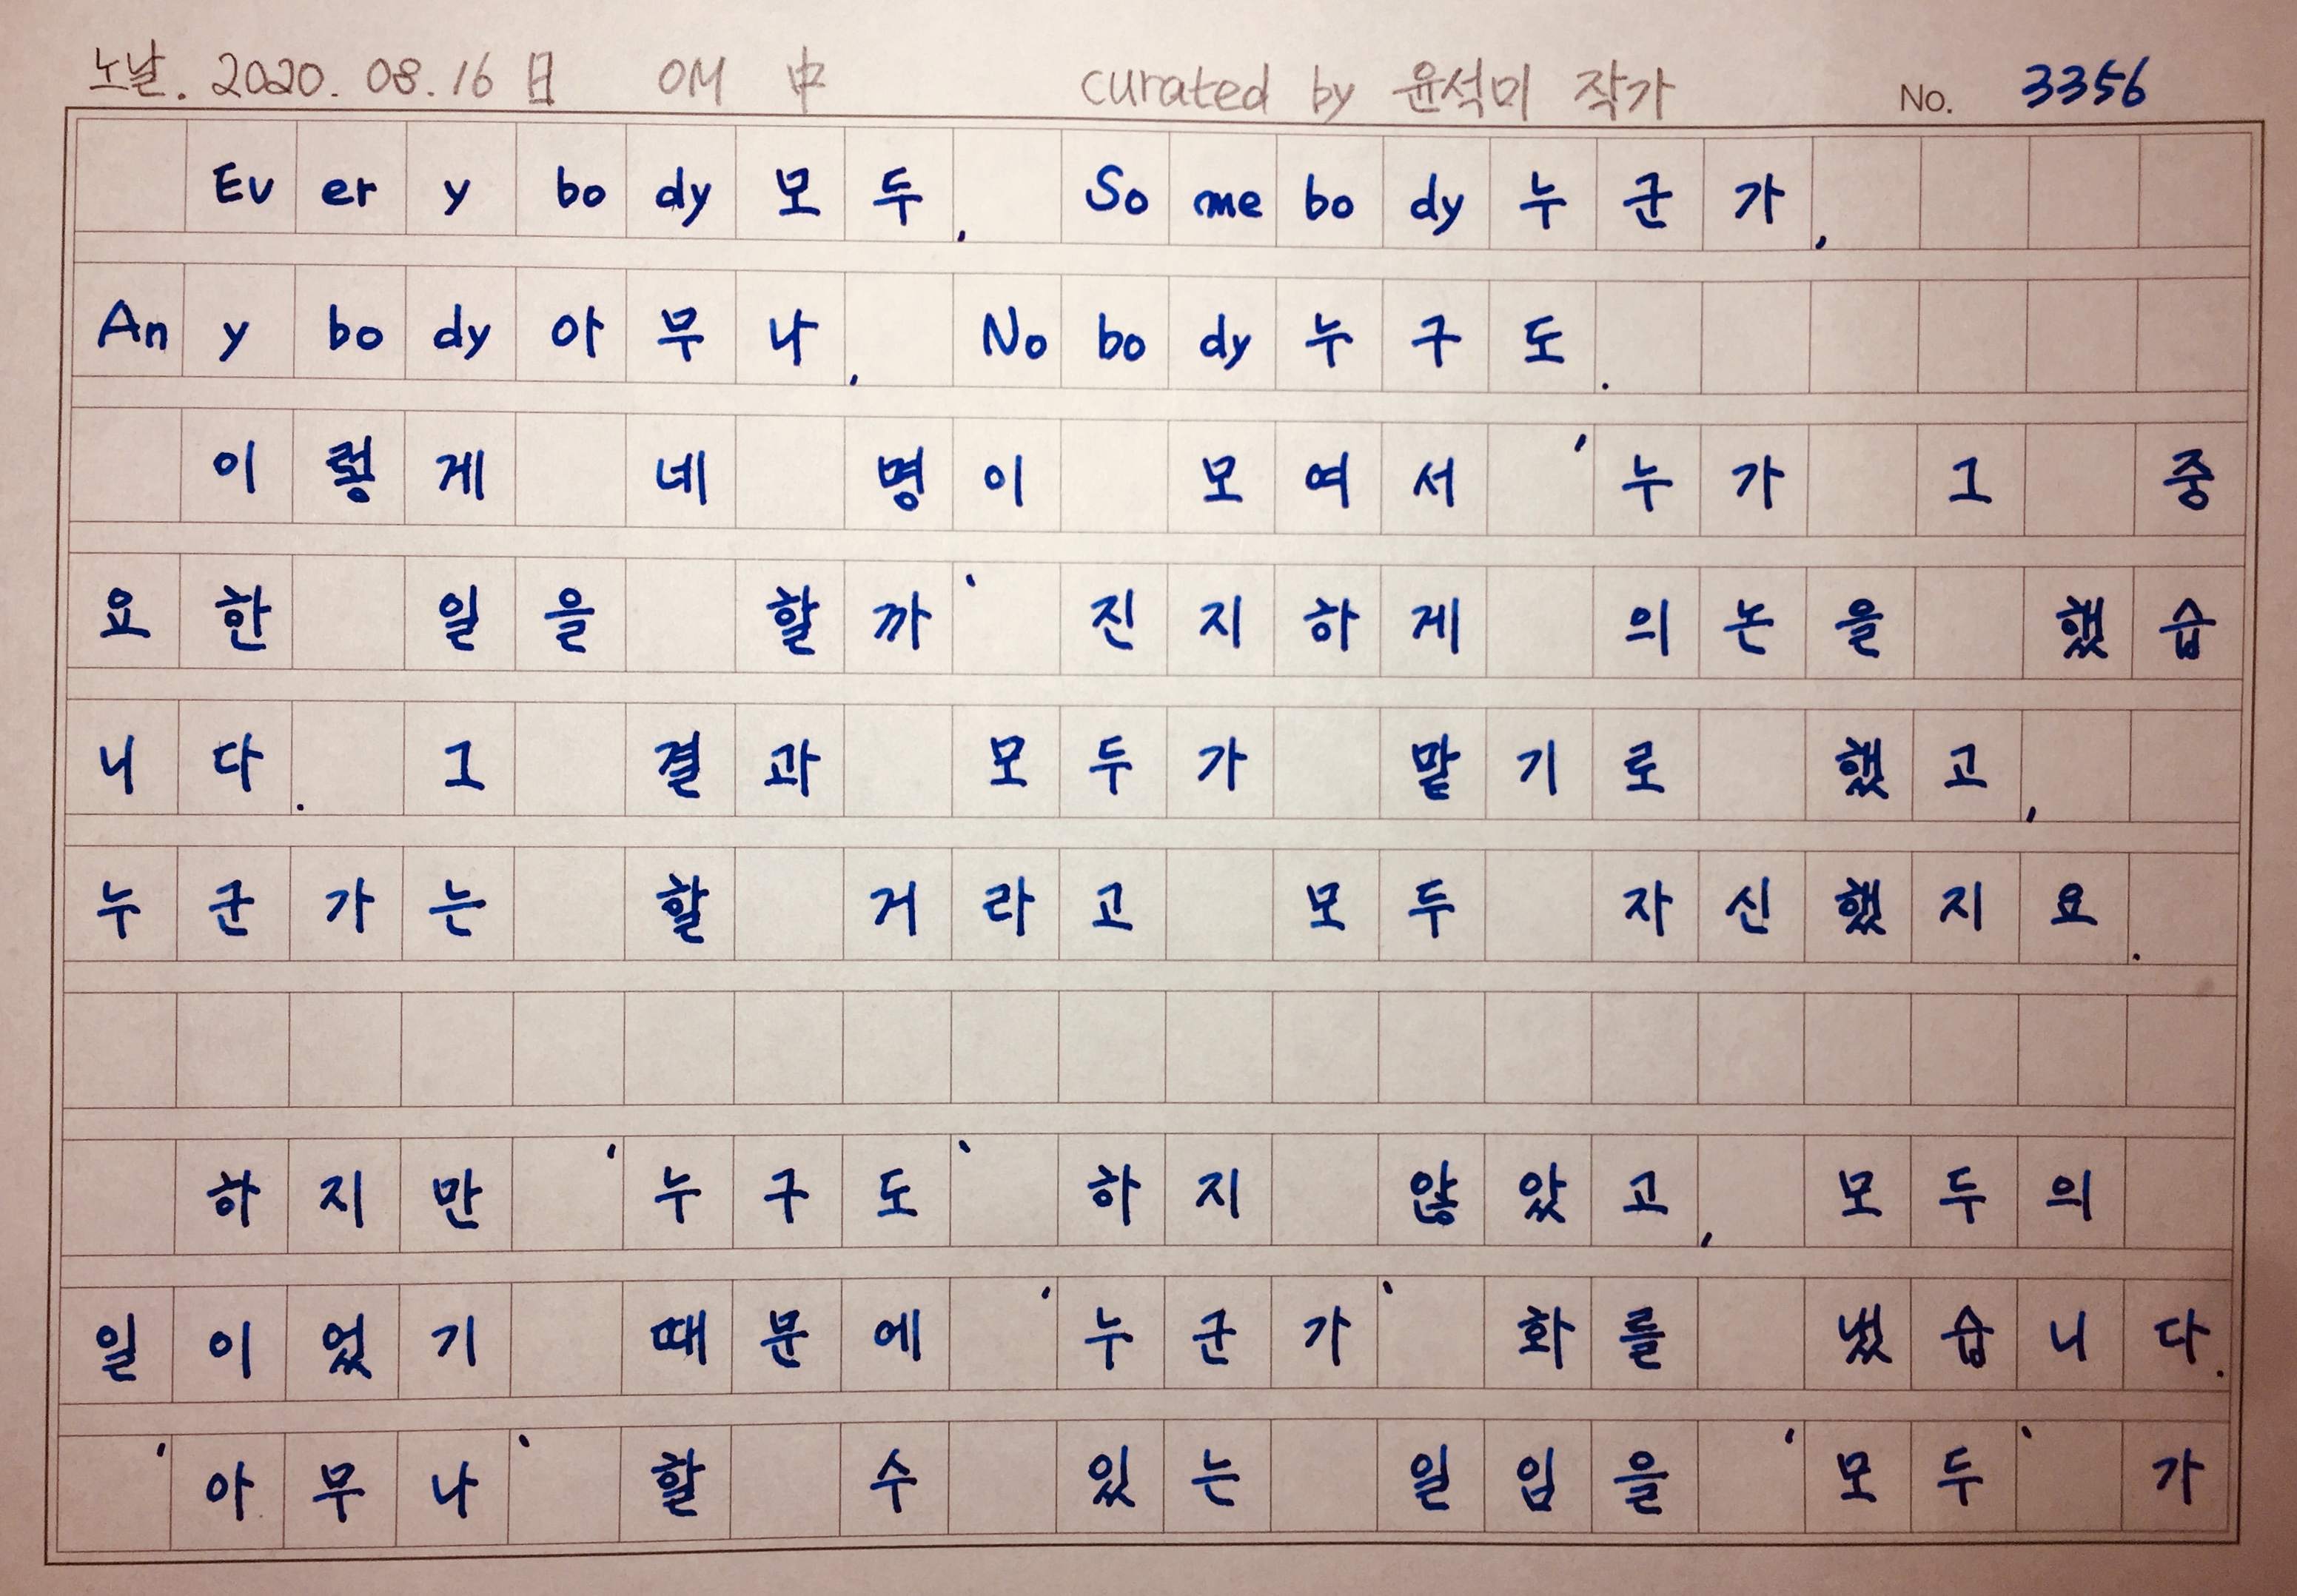 노날. 2020. 08. 16 日 OM 中 curated by 윤석미 작가 No. 3356
Everybody모두, Somebody누군가,
Anybody아무나, Nobody누구도.
이렇게 네 명이 모여서 '누가 그 중
요한 일을 할까' 진지하게 의논을 했습
니다. 그 결과 모두가 맡기로 했고,
누군가는 할 거라고 모두 자신했지요.
하지만 '누구도' 하지 않았고, 모두의
일이었기 때문에 '누군가' 화를 냈습니다.
'아무나' 할 수 있는 일임을 '모두' 가